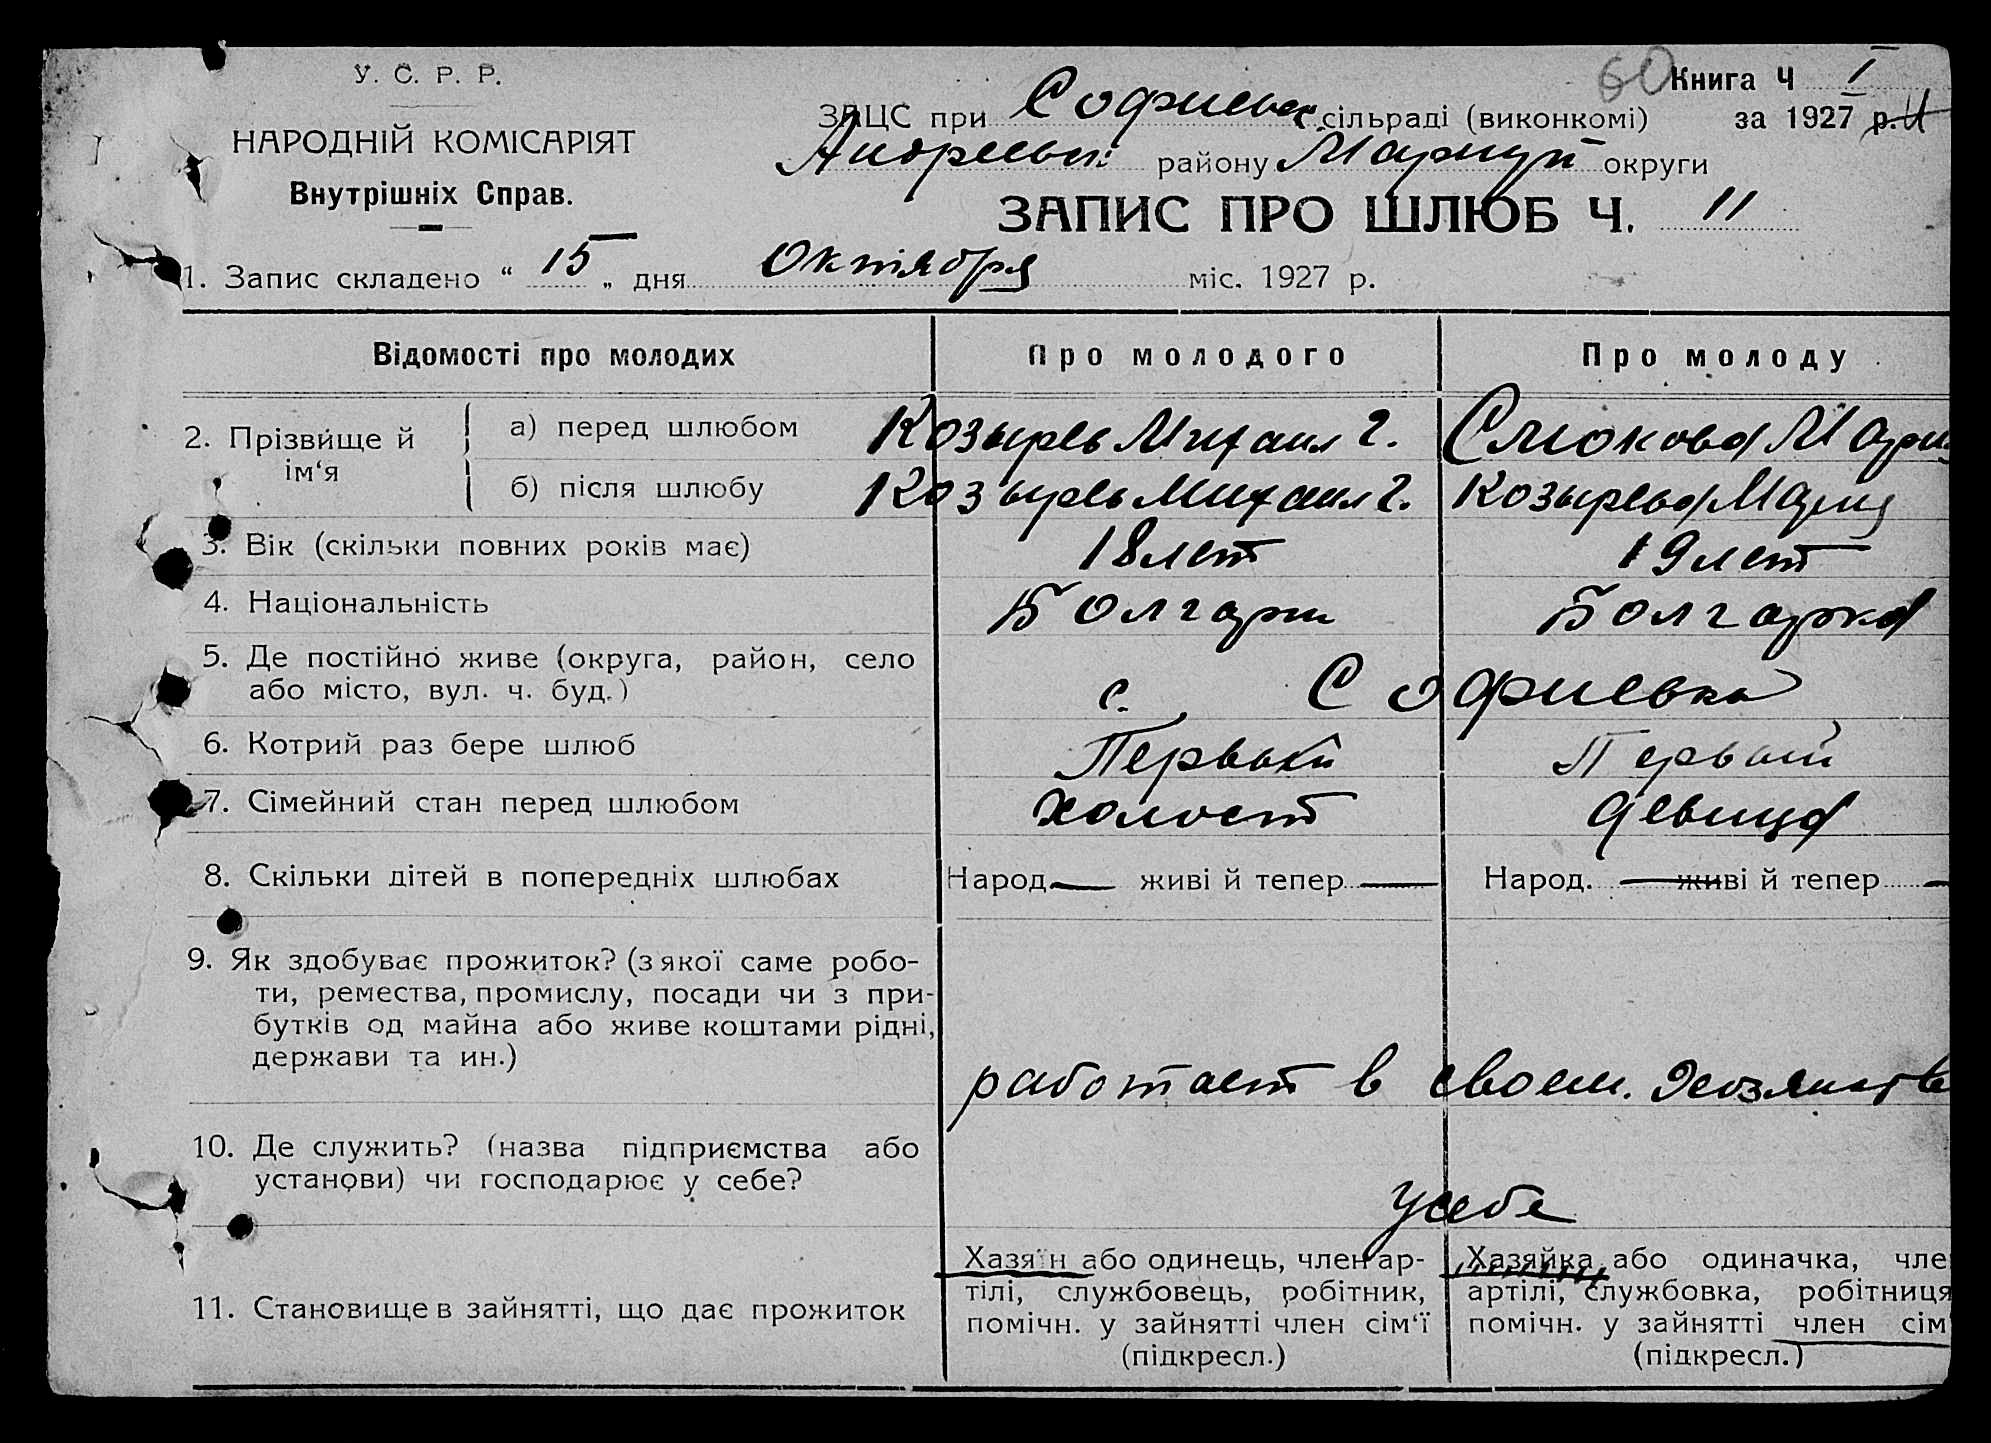 60 Книга Ч I
У. С. Р. Р.
ЗАЦС при Софиевск сільраді (виконкомі) за 1927 р.
НАРОДНІЙ КОМІСАРІЯТ
Андреевск району Мариуп округи
Внутрішніх Справ.
ЗАПИС ПРО ШЛЮБ Ч. 11
1. Запис складено “ 15 „ дня Октября міс. 1927 р.
Відомості про молодих Про молодого Про молоду
2. Прізвище й ім‘я
а) перед шлюбом Козырев Михаил Г. Смокова Мария
б) після шлюбу Козырев Михаил Г. Козырева Мария
3. Вік (скільки повних років має) 18 лет 19 лет
4. Національність Болгарин Болгарка
5. Де постійно живе (округа, район, село
або місто, вул. ч. буд.) с. Софиевка
6. Котрий раз бере шлюб Первый Первый
7. Сімейний стан перед шлюбом холост девица
8. Скільки дітей в попередніх шлюбах Народ. — живі й тепер — Народ. — живі й тепер —
9. Як здобуває прожиток? (з якої саме робо-
ти, ремества, промислу, посади чи з при-
бутків од майна або живе коштами рідні,
держави та ин.)
работает в своем. Хозяйстве
10. Де служить? (назва підприємства або
установи) чи господарює у себе?
у себе
11. Становище в зайнятті, що дає прожиток
Хазяїн або одинець, член ар-
тілі, службовець, робітник,
помічн. у зайнятті член сім‘ї
(підкресл.)
Хазяйка або одиначка, чле
артілі, службовка, робітниця
помічн. у зайнятті член сім
(підкресл.)